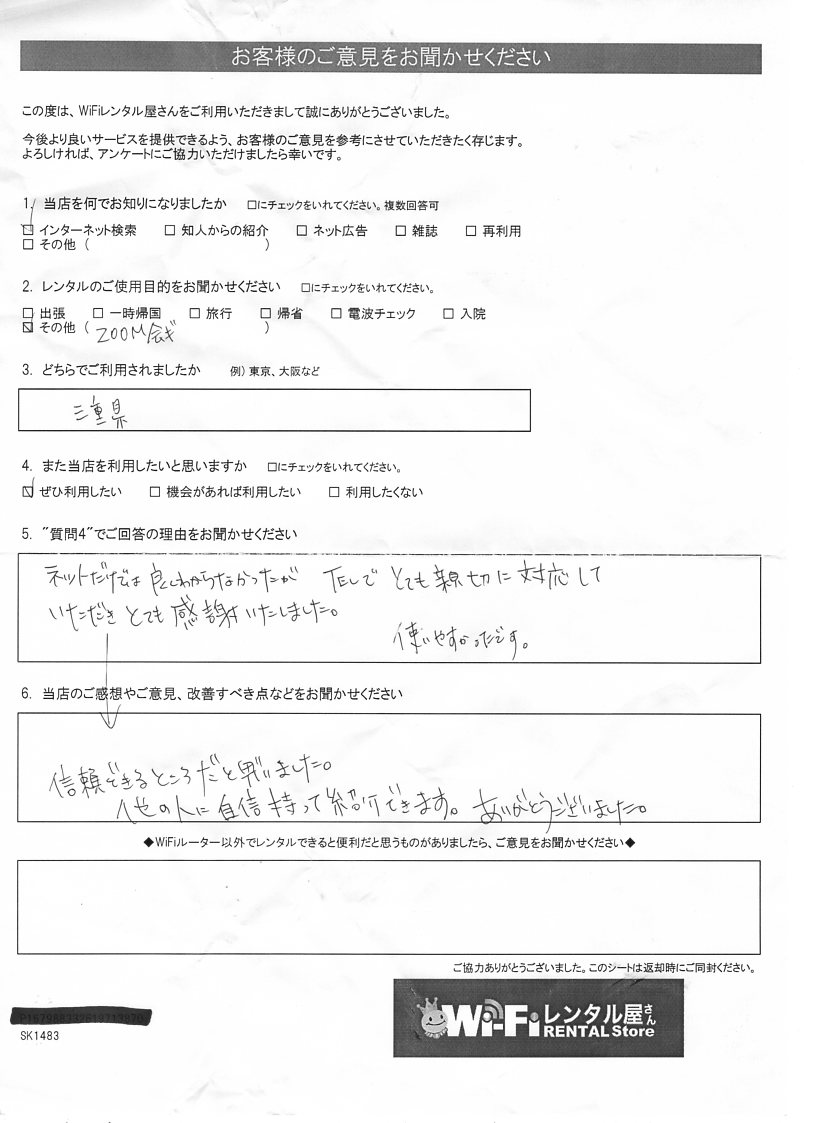 お客様のご意見をお聞かせください
この度は、WiFiレンタル屋さんをご利用いただきまして誠にありがとうございました。
今後より良いサービスを提供できるよう、お客様のご意見を参考にさせていただきたく存じます。
よろしければ、アンケートにご協力いただけましたら幸いです。
1. 当店を何でお知りになりましたか □にチェックをいれてください。複数回答可
☑ インターネット検索 □ 知人からの紹介 □ ネット広告 □ 雑誌 □ 再利用
□ その他 ( )
2. レンタルのご使用目的をお聞かせください □にチェックをいれてください。
□ 出張 □ 一時帰国 □ 旅行 □ 帰省 □ 電波チェック □ 入院
☑ その他 ( ZOOM会ギ )
3. どちらでご利用されましたか 例) 東京、大阪など
三重県
4. また当店を利用したいと思いますか □にチェックをいれてください。
☑ ぜひ利用したい □ 機会があれば利用したい □ 利用したくない
5. "質問4"でご回答の理由をお聞かせください
ネットだけでは良くわからなかったが TELでとても親切に対応して
いただきとても感謝いたしました。
使いやすかったです。
6. 当店のご感想やご意見、改善すべき点などをお聞かせください
信頼できるところだと思いました。
他の人に自信持って紹介できます。ありがとうございました。
◆WiFiルーター以外でレンタルできると便利だと思うものがありましたら、ご意見をお聞かせください◆
ご協力ありがとうございました。このシートは返却時にご同封ください。
Wi-Fiレンタル屋さん
RENTAL Store
SK1483